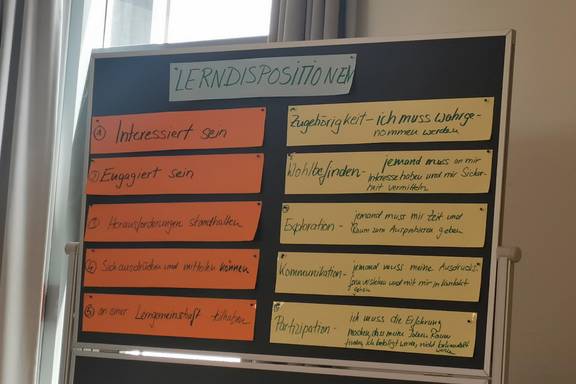 LERNDISPOSITIONEN
① Interessiert sein
② Engagiert sein
③ Herausforderungen standhalten
④ Sich ausdrücken und mitteilen können
⑤ an einer Lerngemeinschaft teilhaben
Zugehörigkeit - ich muss wahrge-
nommen werden
Wohlbefinden - jemand muss an mir
Interesse haben und mir Sicher-
heit vermitteln
Exploration - jemand muss mir Zeit und
Raum zum Ausprobieren geben
Kommunikation - jemand muss meine Ausdrucks-
verstehen und mit mir in Kontakt
Partizipation - ich muss die Erfahrung
machen, dass meine Ideen Raum
finden, ich beteiligt werde, nicht
werde